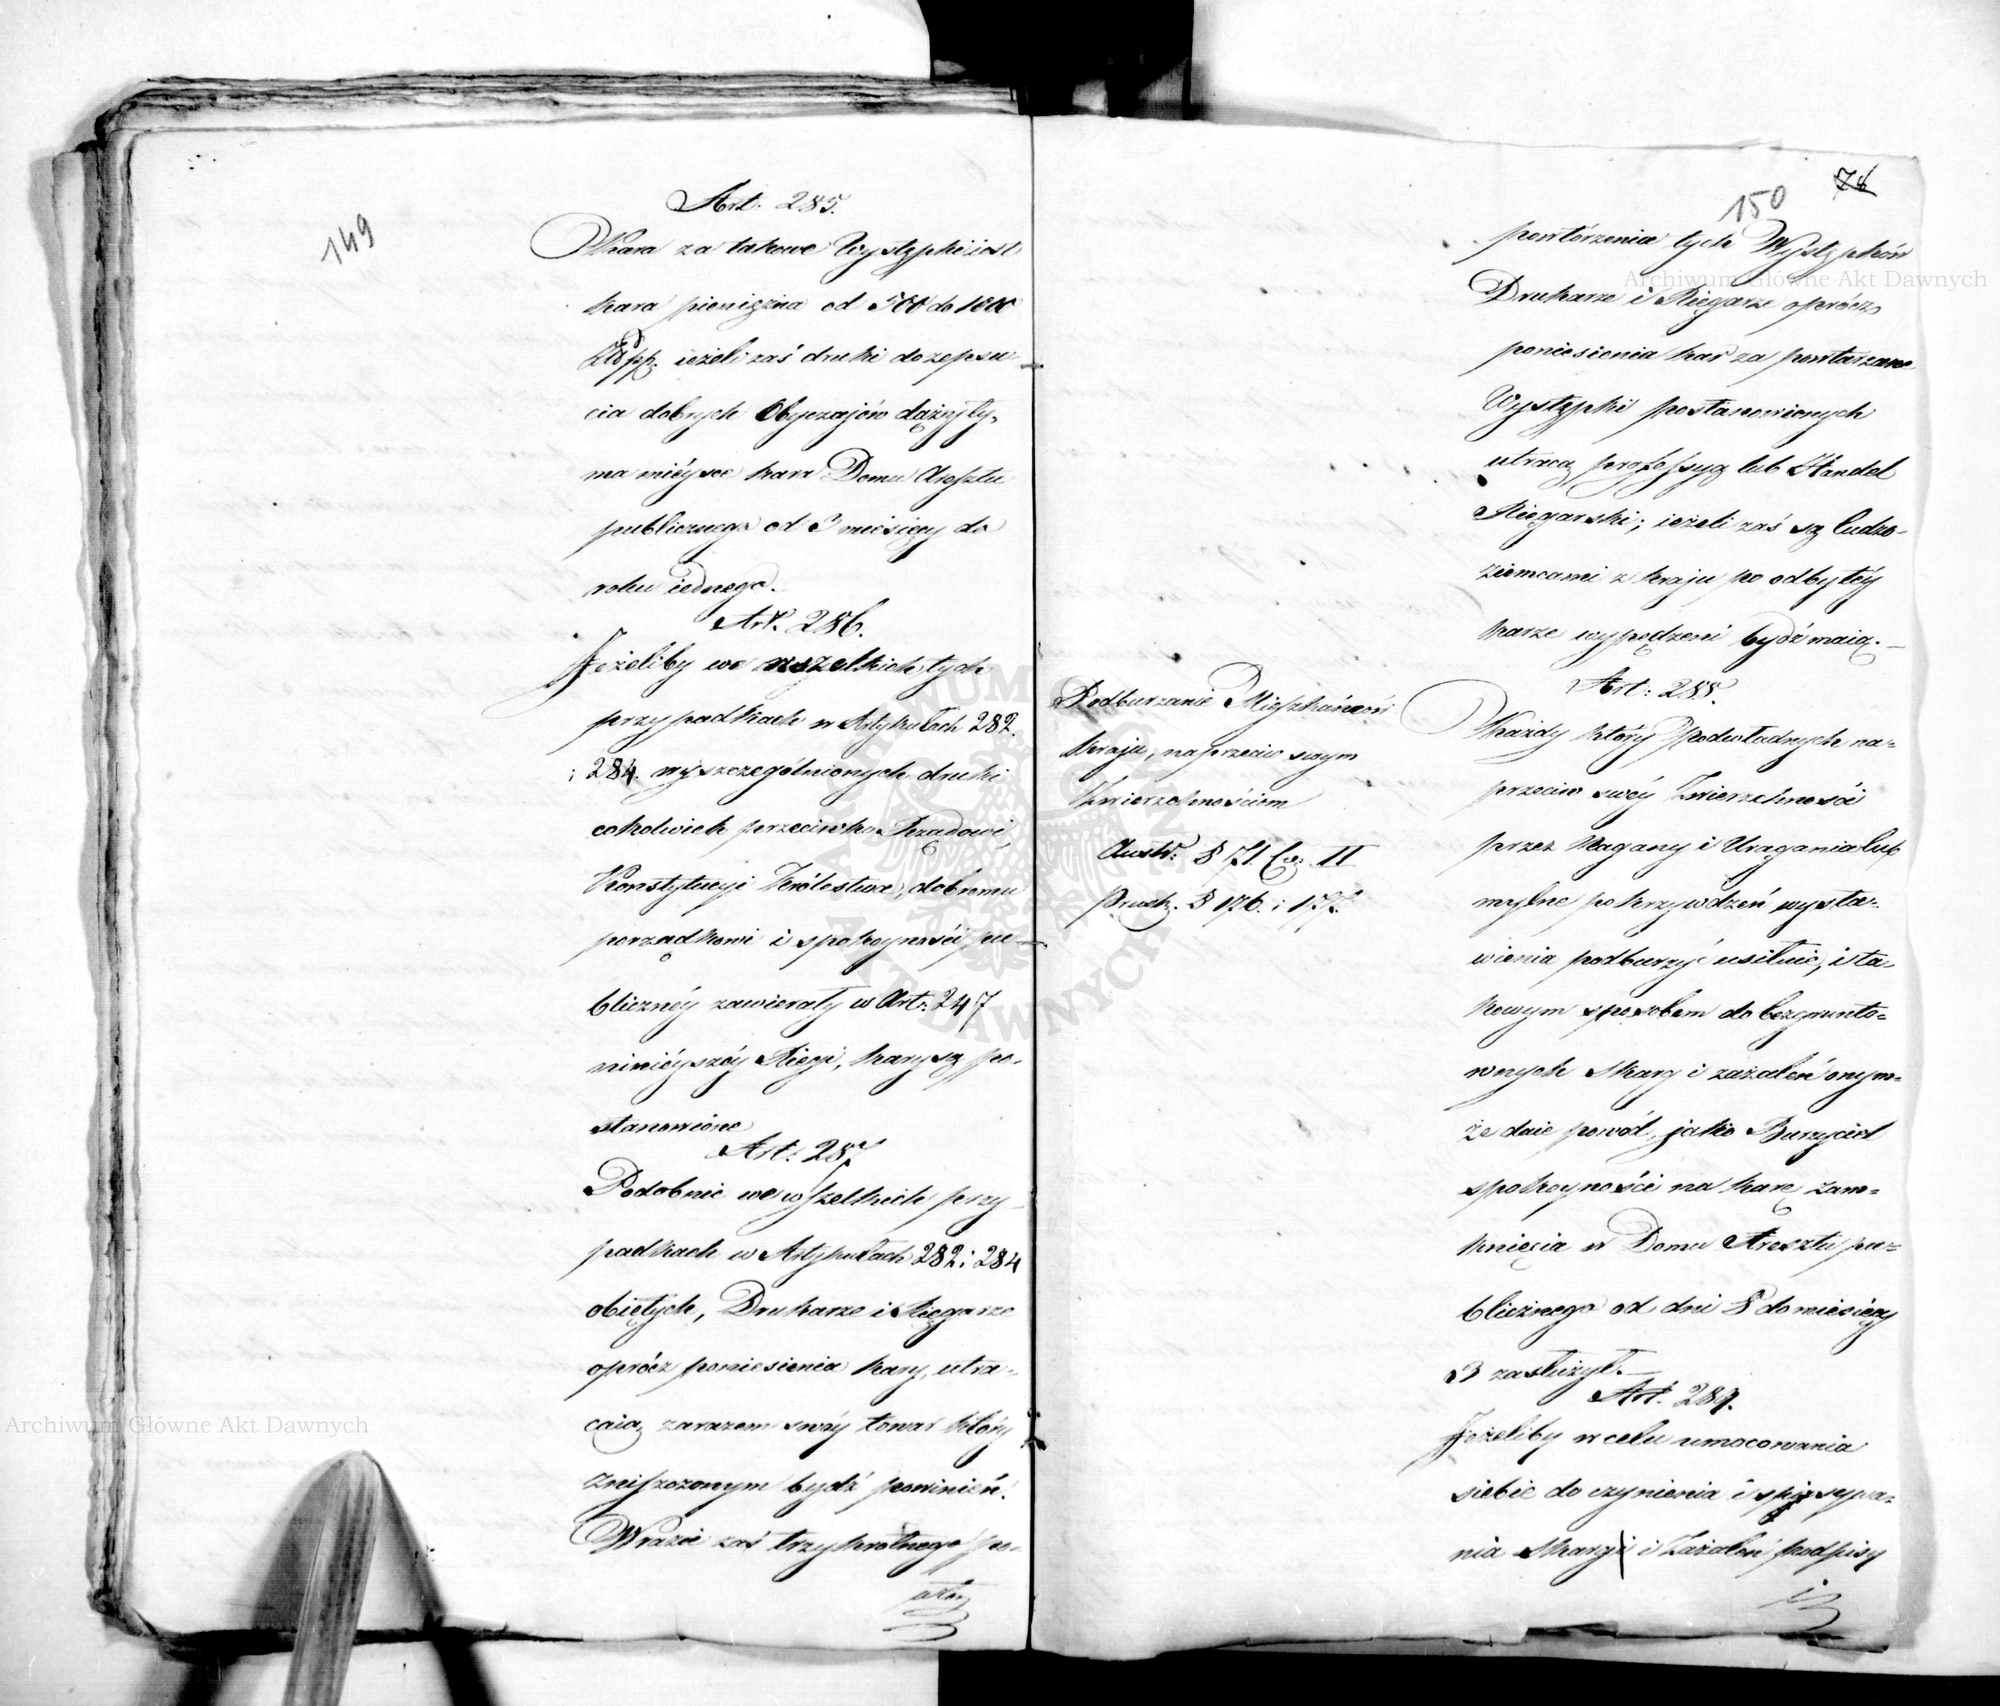 149
Art. 285.
Kara za takowe Występki iest
kara pieniężna od 500 do 1000
Złłpp. ieżeli zaś druki do zepsu-
cia dobrych Obyczajów dążyły,
ma mieysce kara Domu Aresztu
publicznego od 3 miesięcy do
roku iednego.
Art. 286.
Jeżeliby we wszelkich tych
przypadkach w Artykułach 282.
i 284. wyszczególnionych druki
cokolwiek przeciwko Rządowi,
Konstytucyi Królestwa, dobremu
porządkowi i spokoyności pu-
bliczney zawierały w Art: 247
ninieyszey Xięgi, kary są po-
stanowione
Art: 287
Podobnie we wszelkich przy-
padkach w Artykułach 282 i 284
obiętych, Drukarze i Xięgarze
oprócz poniesienia kary, utra-
caią zarazem swóy towar który
zniszczonym bydź powinien.
W razie zaś trzykrotnego po-
78
150
powtórzenia tych Występków
Drukarze i Xięgarze oprócz
poniesienia kar za powtarzane
Występki postanowionych
utracą professyą lub Handel
Xięgarski; ieżeli zaś są cudzo-
ziemcami z kraju po odbytéy
karze wypędzeni bydź maią.
Podburzanie Mieszkańców
kraju, naprzeciw swym
Zwierzchnościom
Austr: § 71. Cz: II
Prusk. § 176. i 177.
Art: 288.
Każdy który Podwładnych na-
przeciw swéy Zwierzchności
przez Nagany i Urągania lub
mylne pokrzywdzeń wysta-
wienia podburzyć usiłuie, i ta-
kowym sposobem do bezgrunto-
wnych skarg i zażaleń onym-
że daie powód, jako Burzyciel
spokoyności na karę zam-
knięcia w Domu Aresztu pu-
blicznego od dni 8 do miesięcy
3 zasłużył.
Art. 289.
Jeżeliby w celu umocowania
siebie do czynienia i spisywa-
nia Skarg i Zażaleń podpisy
Archiwum Główne Akt Dawnych
Archiwum Główne Akt Dawnych
ARCHIWUM GŁÓWNE AKT DAWNYCH